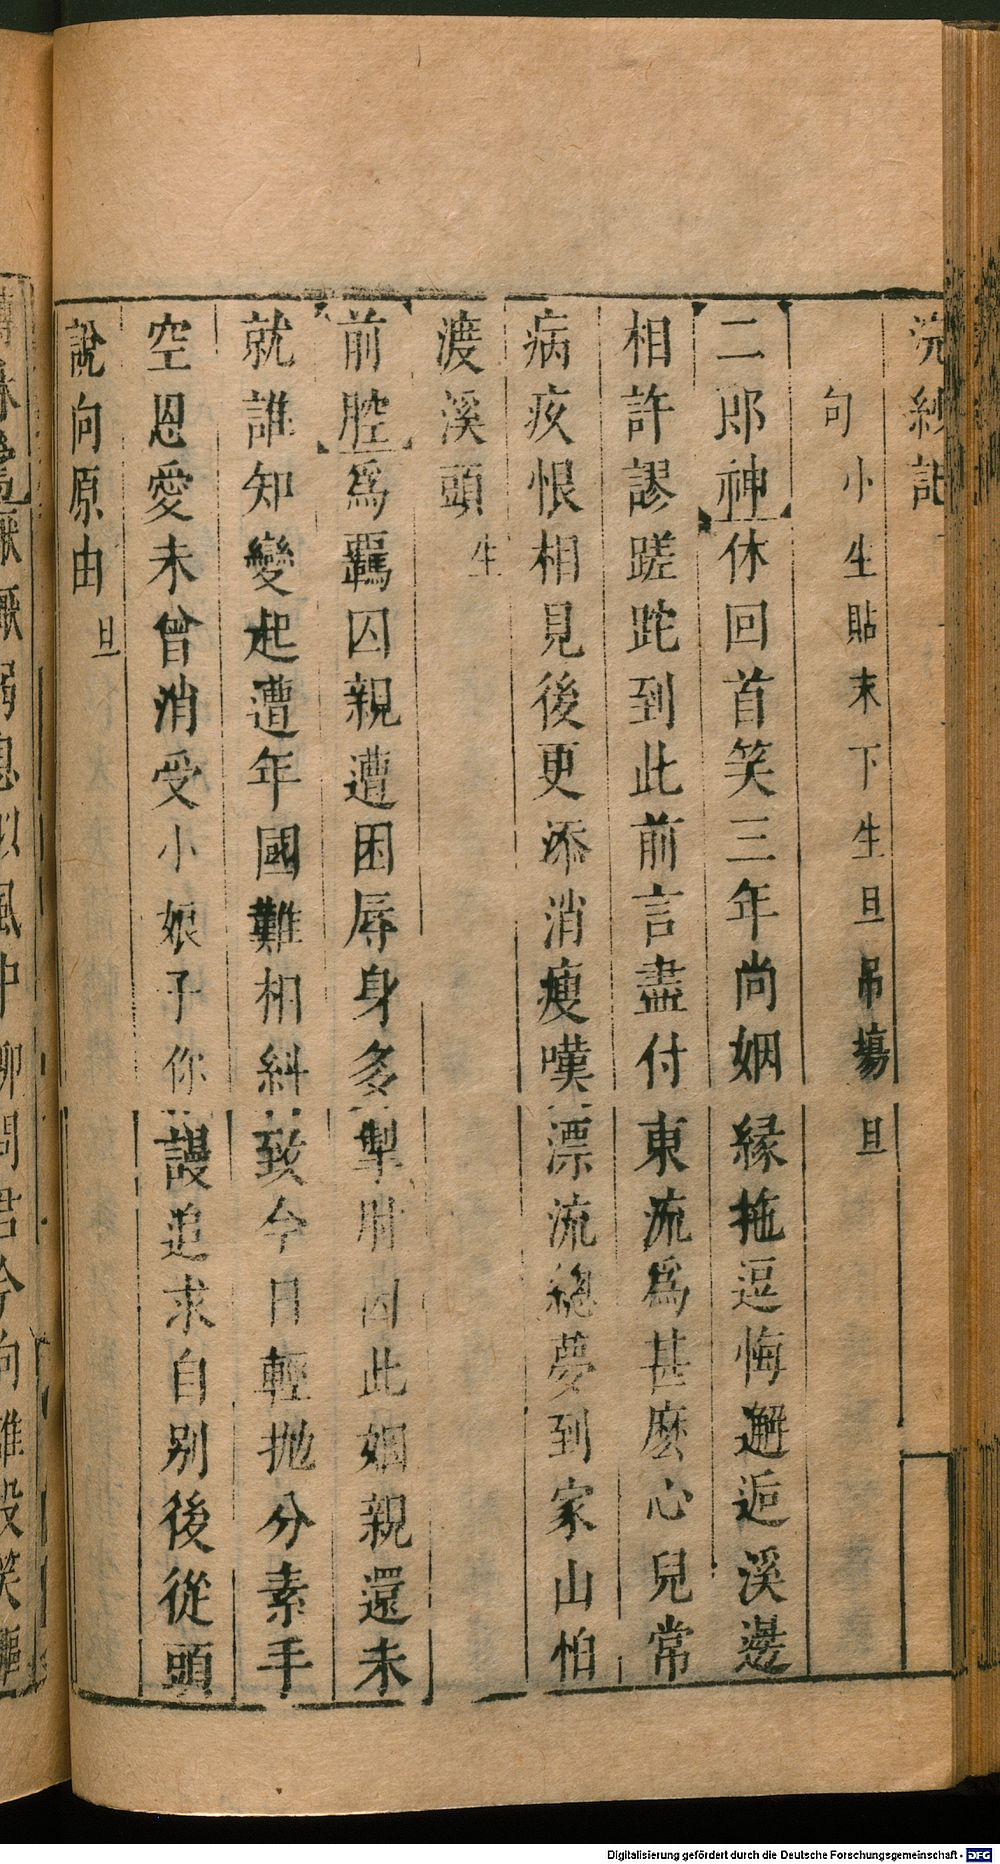 浣紗記
句 小生貼末下生旦吊塲 旦
二郎神休回首笑三年尚姻緣拖逗悔邂逅溪邊
相許謬蹉跎到此前言盡付東流爲甚麽心兒常
病疚恨相見後更添消瘦嘆漂流總夢到家山怕
渡溪頭 生
前腔爲羈囚親遭困辱身多掣肘因此姻親還未
就誰知變起遭年國難相糾致今日輕抛分素手
空恩愛未曾消受小娘子你謾追求自别後從頭
說向原由 旦
息似風中柳問君今向誰
Digitalisierung gefördert durch die Deutsche Forschungsgemeinschaft - DFG